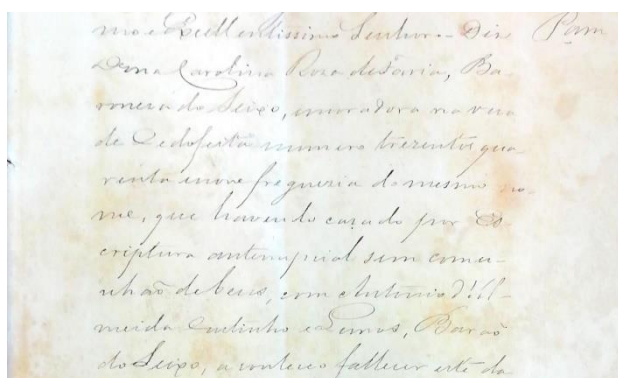 mo e Excellentissimo Senhor - Diz
Dona Carolina Rosa de Faria, Ba-
roneza do Seixo, moradora na rua
de Cedofeita numero trezentos qua-
renta e nove freguezia do mesmo no-
me, que havendo casado por Es-
criptura antenupcial sem comu-
nhão de bens, com Antonio d'Al-
meida Coutinho e Lemos, Barão
do Seixo, aconteceo fallecer este da